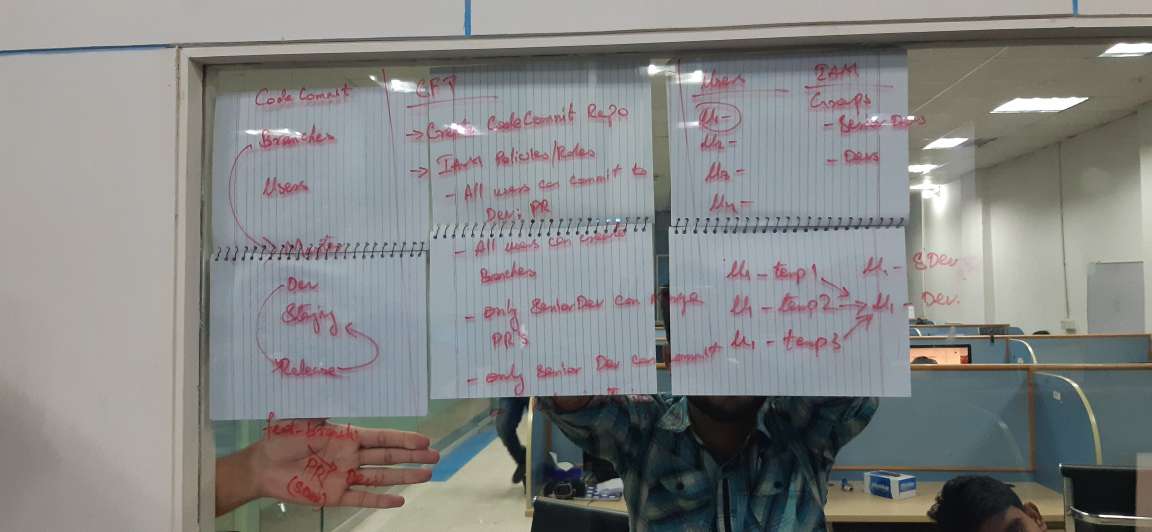 Code Commit
Branches
Users
Master
Dev
Staging
Release
feat-branch
PR
Dev
CFT
→ Create CodeCommit Repo
→ IAM Policies/Roles
- All users can commit to
Dev: PR
- All users can create
Branches
- only Senior Dev can merge
PR's
- only Senior Dev can commit
Users
U1-
U2-
U3-
U4-
IAM
Groups
- Senior Devs
- Devs
U1 - temp1
U1 - temp2 → U1 - Dev.
U1 - temp3
U1 - SDev